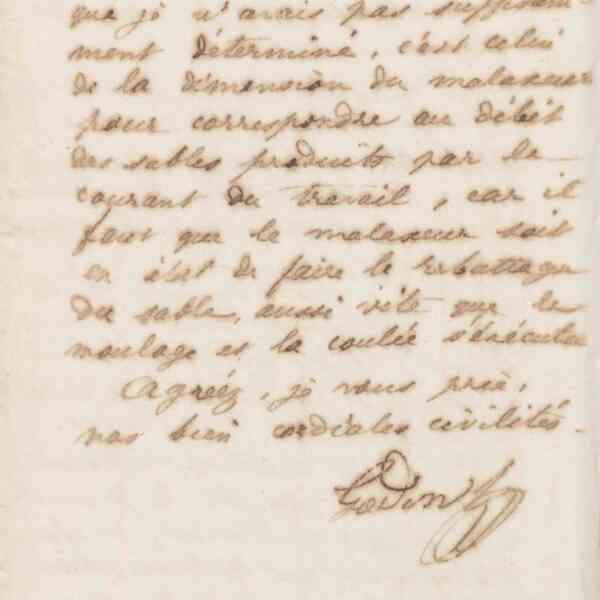 que je n'avais pas suffisam-
ment déterminé, c'est celui
de la dimension du malaxeur
pour correspondre au débit
des sables produits par le
courant du travail, car il
faut que le malaxeur soit
en état de faire le rebattage
du sable, aussi vite que le
moulage et la coulée s'exécute
Agréez, je vous prie,
nos bien cordiales civilités.
Godin